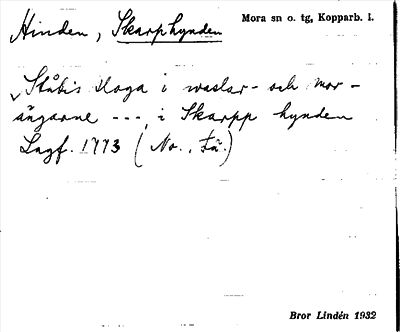 Hinden, Skarphynden
Mora sn o. tg, Kopparb. l.
Ståbis Haga i waslar- och mor-
ängarne ---, i Skarpp hynden
Lagf. 1773 (No., Fä.)
Bror Lindén 1932